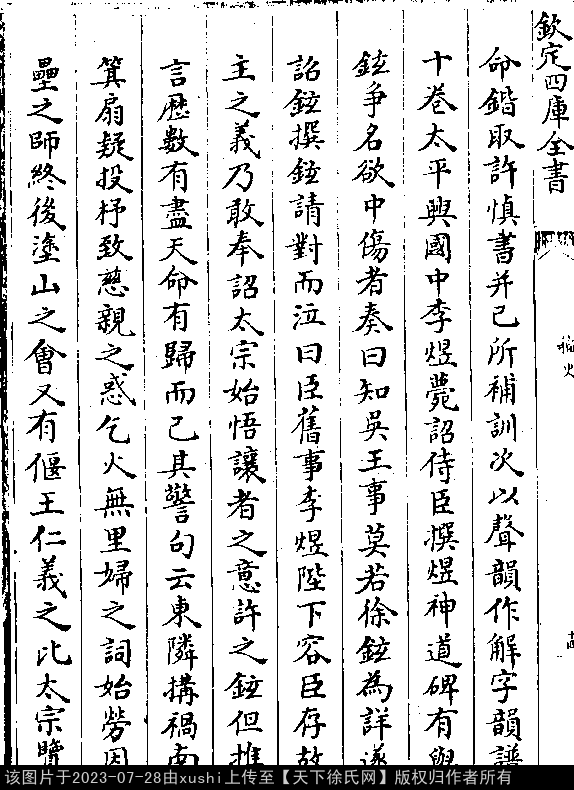 欽定四庫全書
命鍇取許慎書并已所補訓次以聲韻作解字韻譜
十卷太平興國中李煜薨詔侍臣撰煜神道碑有與
鉉爭名欲中傷者奏曰知吳王事莫若徐鉉為詳遂
詔鉉撰鉉請對而泣曰臣舊事李煜陛下容臣存故
主之義乃敢奉詔太宗始悟讓者之意許之鉉但推
言歴數有盡天命有歸而已其警句云東隣搆禍南
箕扇疑投杼致慈親之惑乞火無里婦之詞始勞因
壘之師終後塗山之㑹又有偃王仁義之比太宗覽
该图片于2023-07-28由xushi上传至【天下徐氏网】版权归作者所有